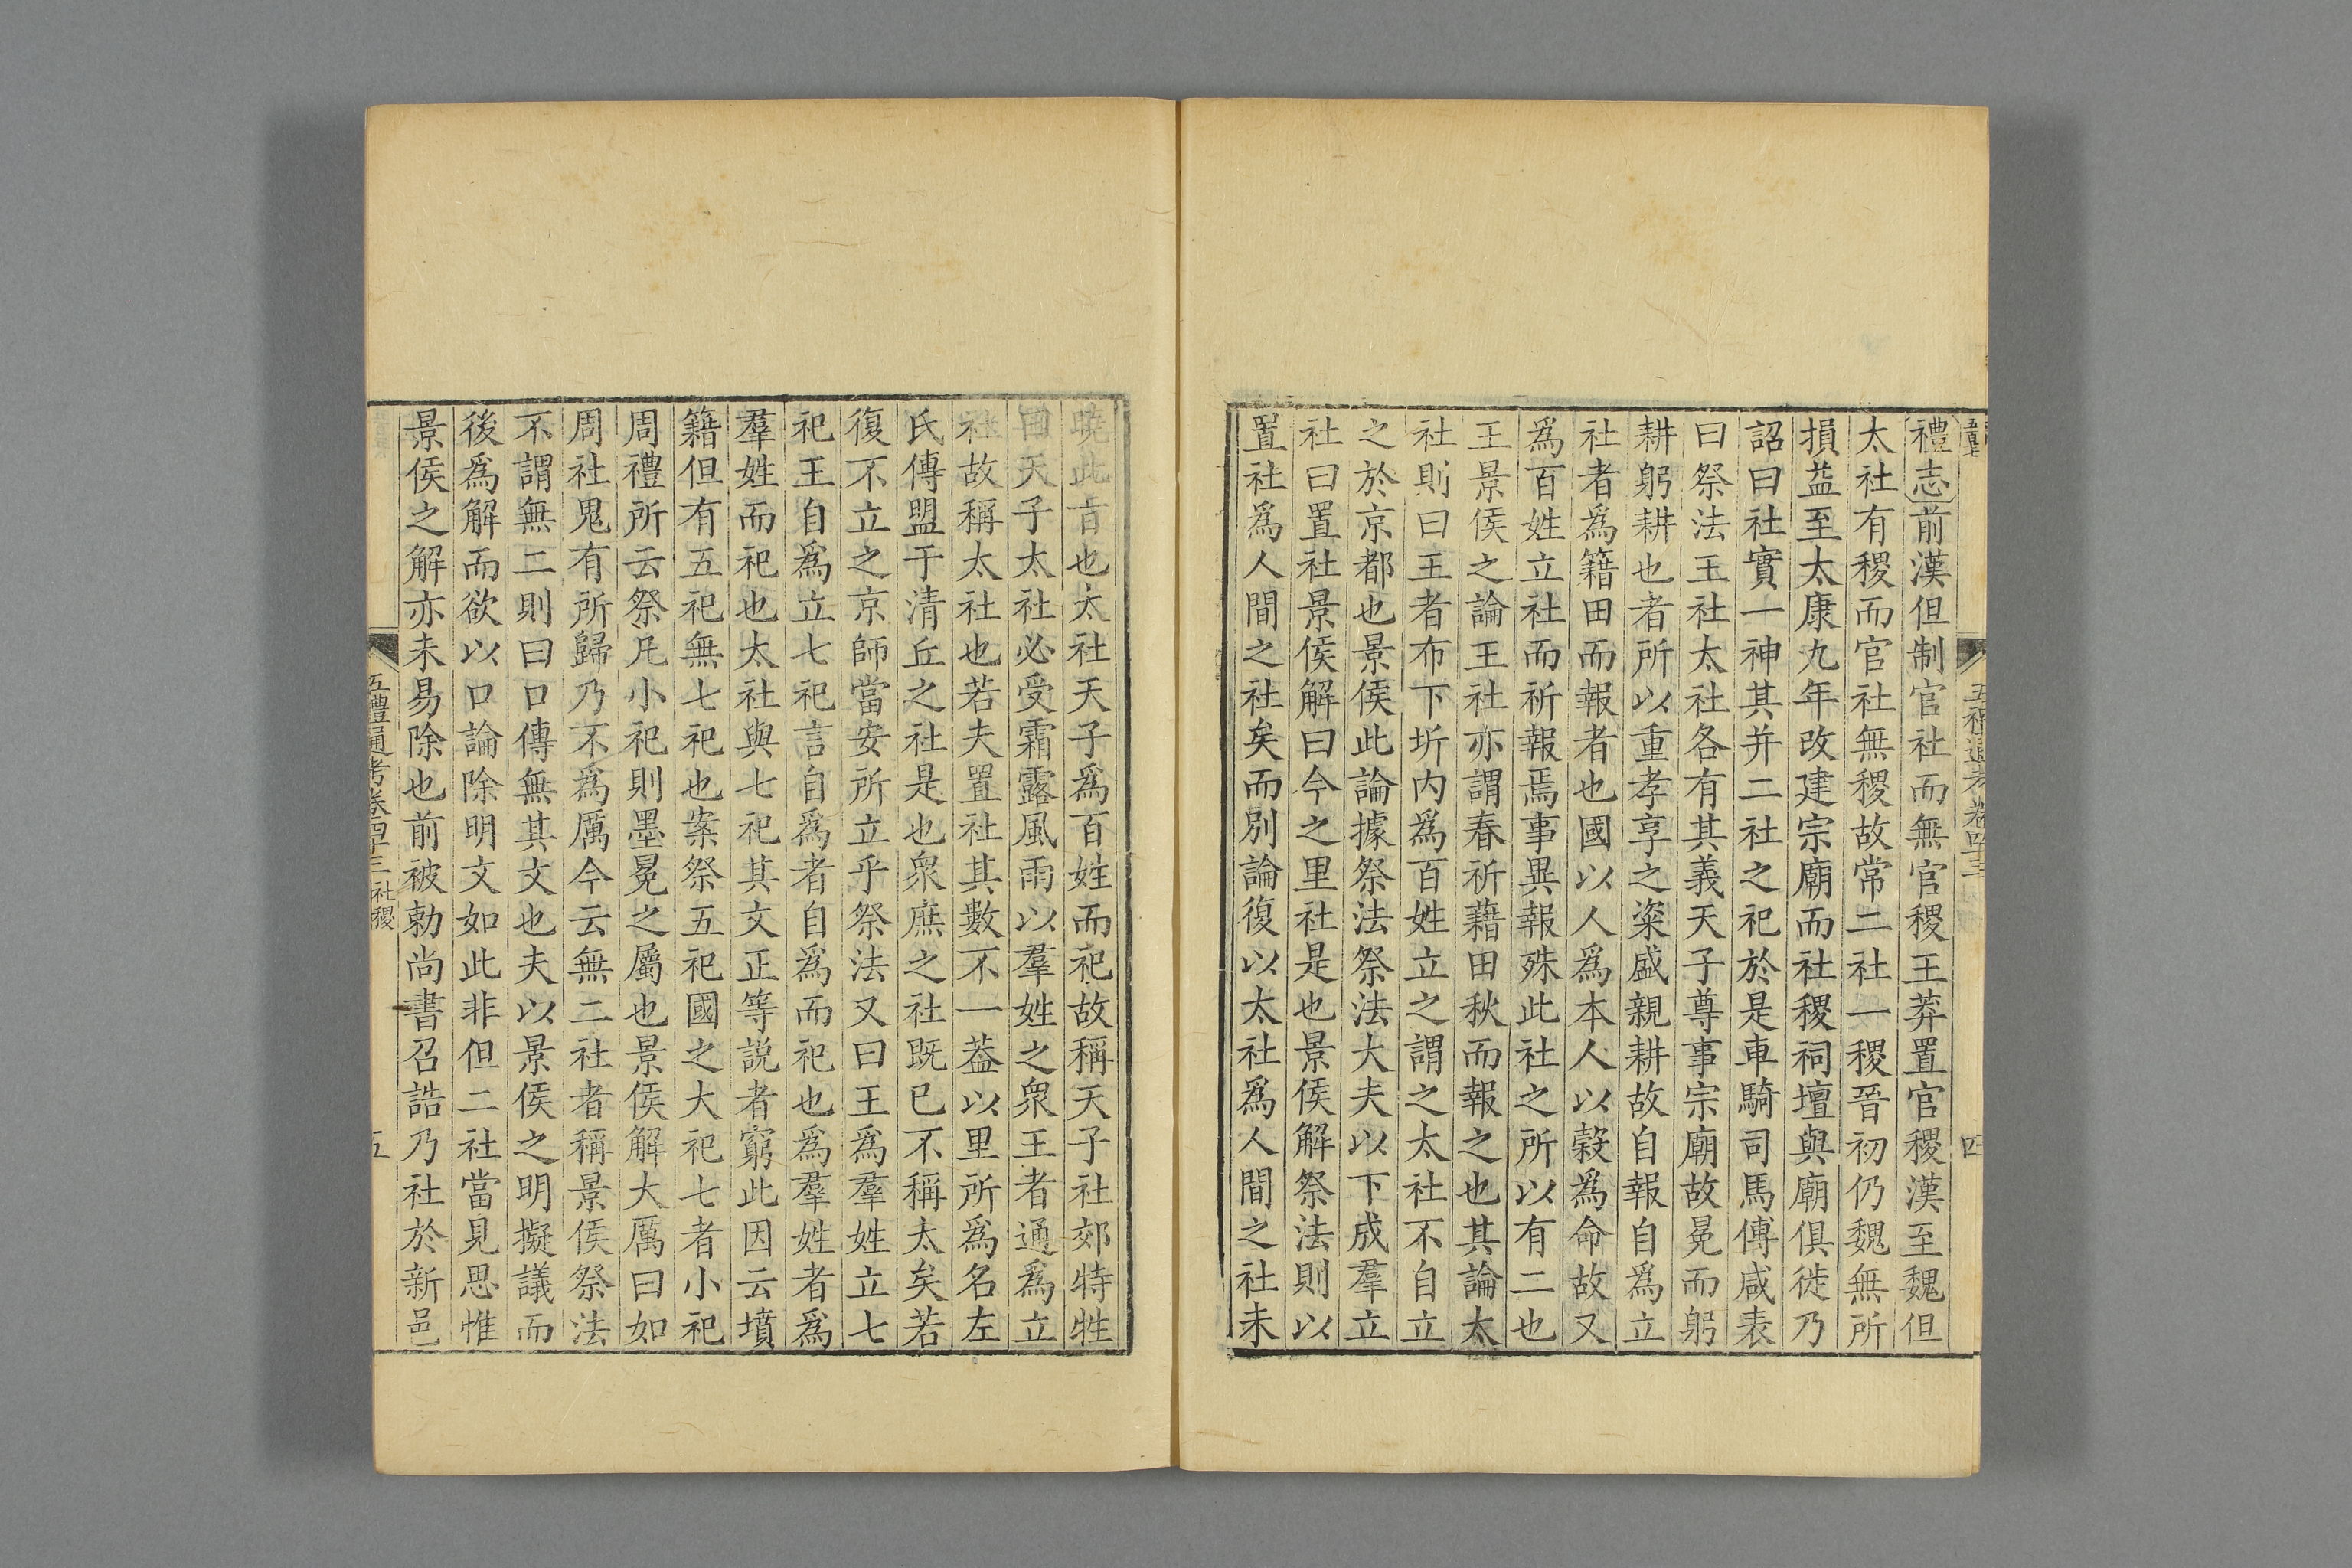 禮志前漢但制官社而無官稷王莽置官稷漢至魏但
太社有稷而官社無稷故常二社一稷晉初仍魏無所
損益至太康九年改建宗廟而社稷祠壇與廟俱徙乃
詔曰社實一神其并二社之祀於是車騎司馬傅咸表
曰祭法王社太社各有其義天子尊事宗廟故冕而躬
耕躬耕也者所以重孝享之粢盛親耕故自報自爲立
社者爲籍田而報者也國以人爲本人以穀爲命故又
爲百姓立社而祈報焉事異報殊此社之所以有二也
王景侯之論王社亦謂春祈藉田秋而報之也其論太
社則曰王者布下圻内爲百姓立之謂之太社不自立
之於京都也景侯此論據祭法祭法大夫以下成羣立
社曰置社景侯解曰今之里社是也景侯解祭法則以
置社爲人間之社矣而別論復以太社爲人間之社未
曉此旨也太社天子爲百姓而祀故稱天子社郊特牲
曰天子太社必受霜露風雨以羣姓之衆王者通爲立
社故稱太社也若夫置社其數不一葢以里所爲名左
氏傳盟于清丘之社是也衆庶之社既已不稱太矣若
復不立之京師當安所立乎祭法又曰王爲羣姓立七
祀王自爲立七祀言自爲者自爲而祀也爲羣姓者爲
羣姓而祀也太社與七祀其文正等説者窮此因云墳
籍但有五祀無七祀也案祭五祀國之大祀七者小祀
周禮所云祭凡小祀則墨冕之屬也景侯解大厲曰如
周社鬼有所歸乃不爲厲今云無二社者稱景侯祭法
不謂無二則曰口傳無其文也夫以景侯之明擬議而
後爲解而欲以口論除明文如此非但二社當見思惟
景侯之解亦未易除也前被勅尚書召誥乃社於新邑
五禮通考卷四十三 社稷 五